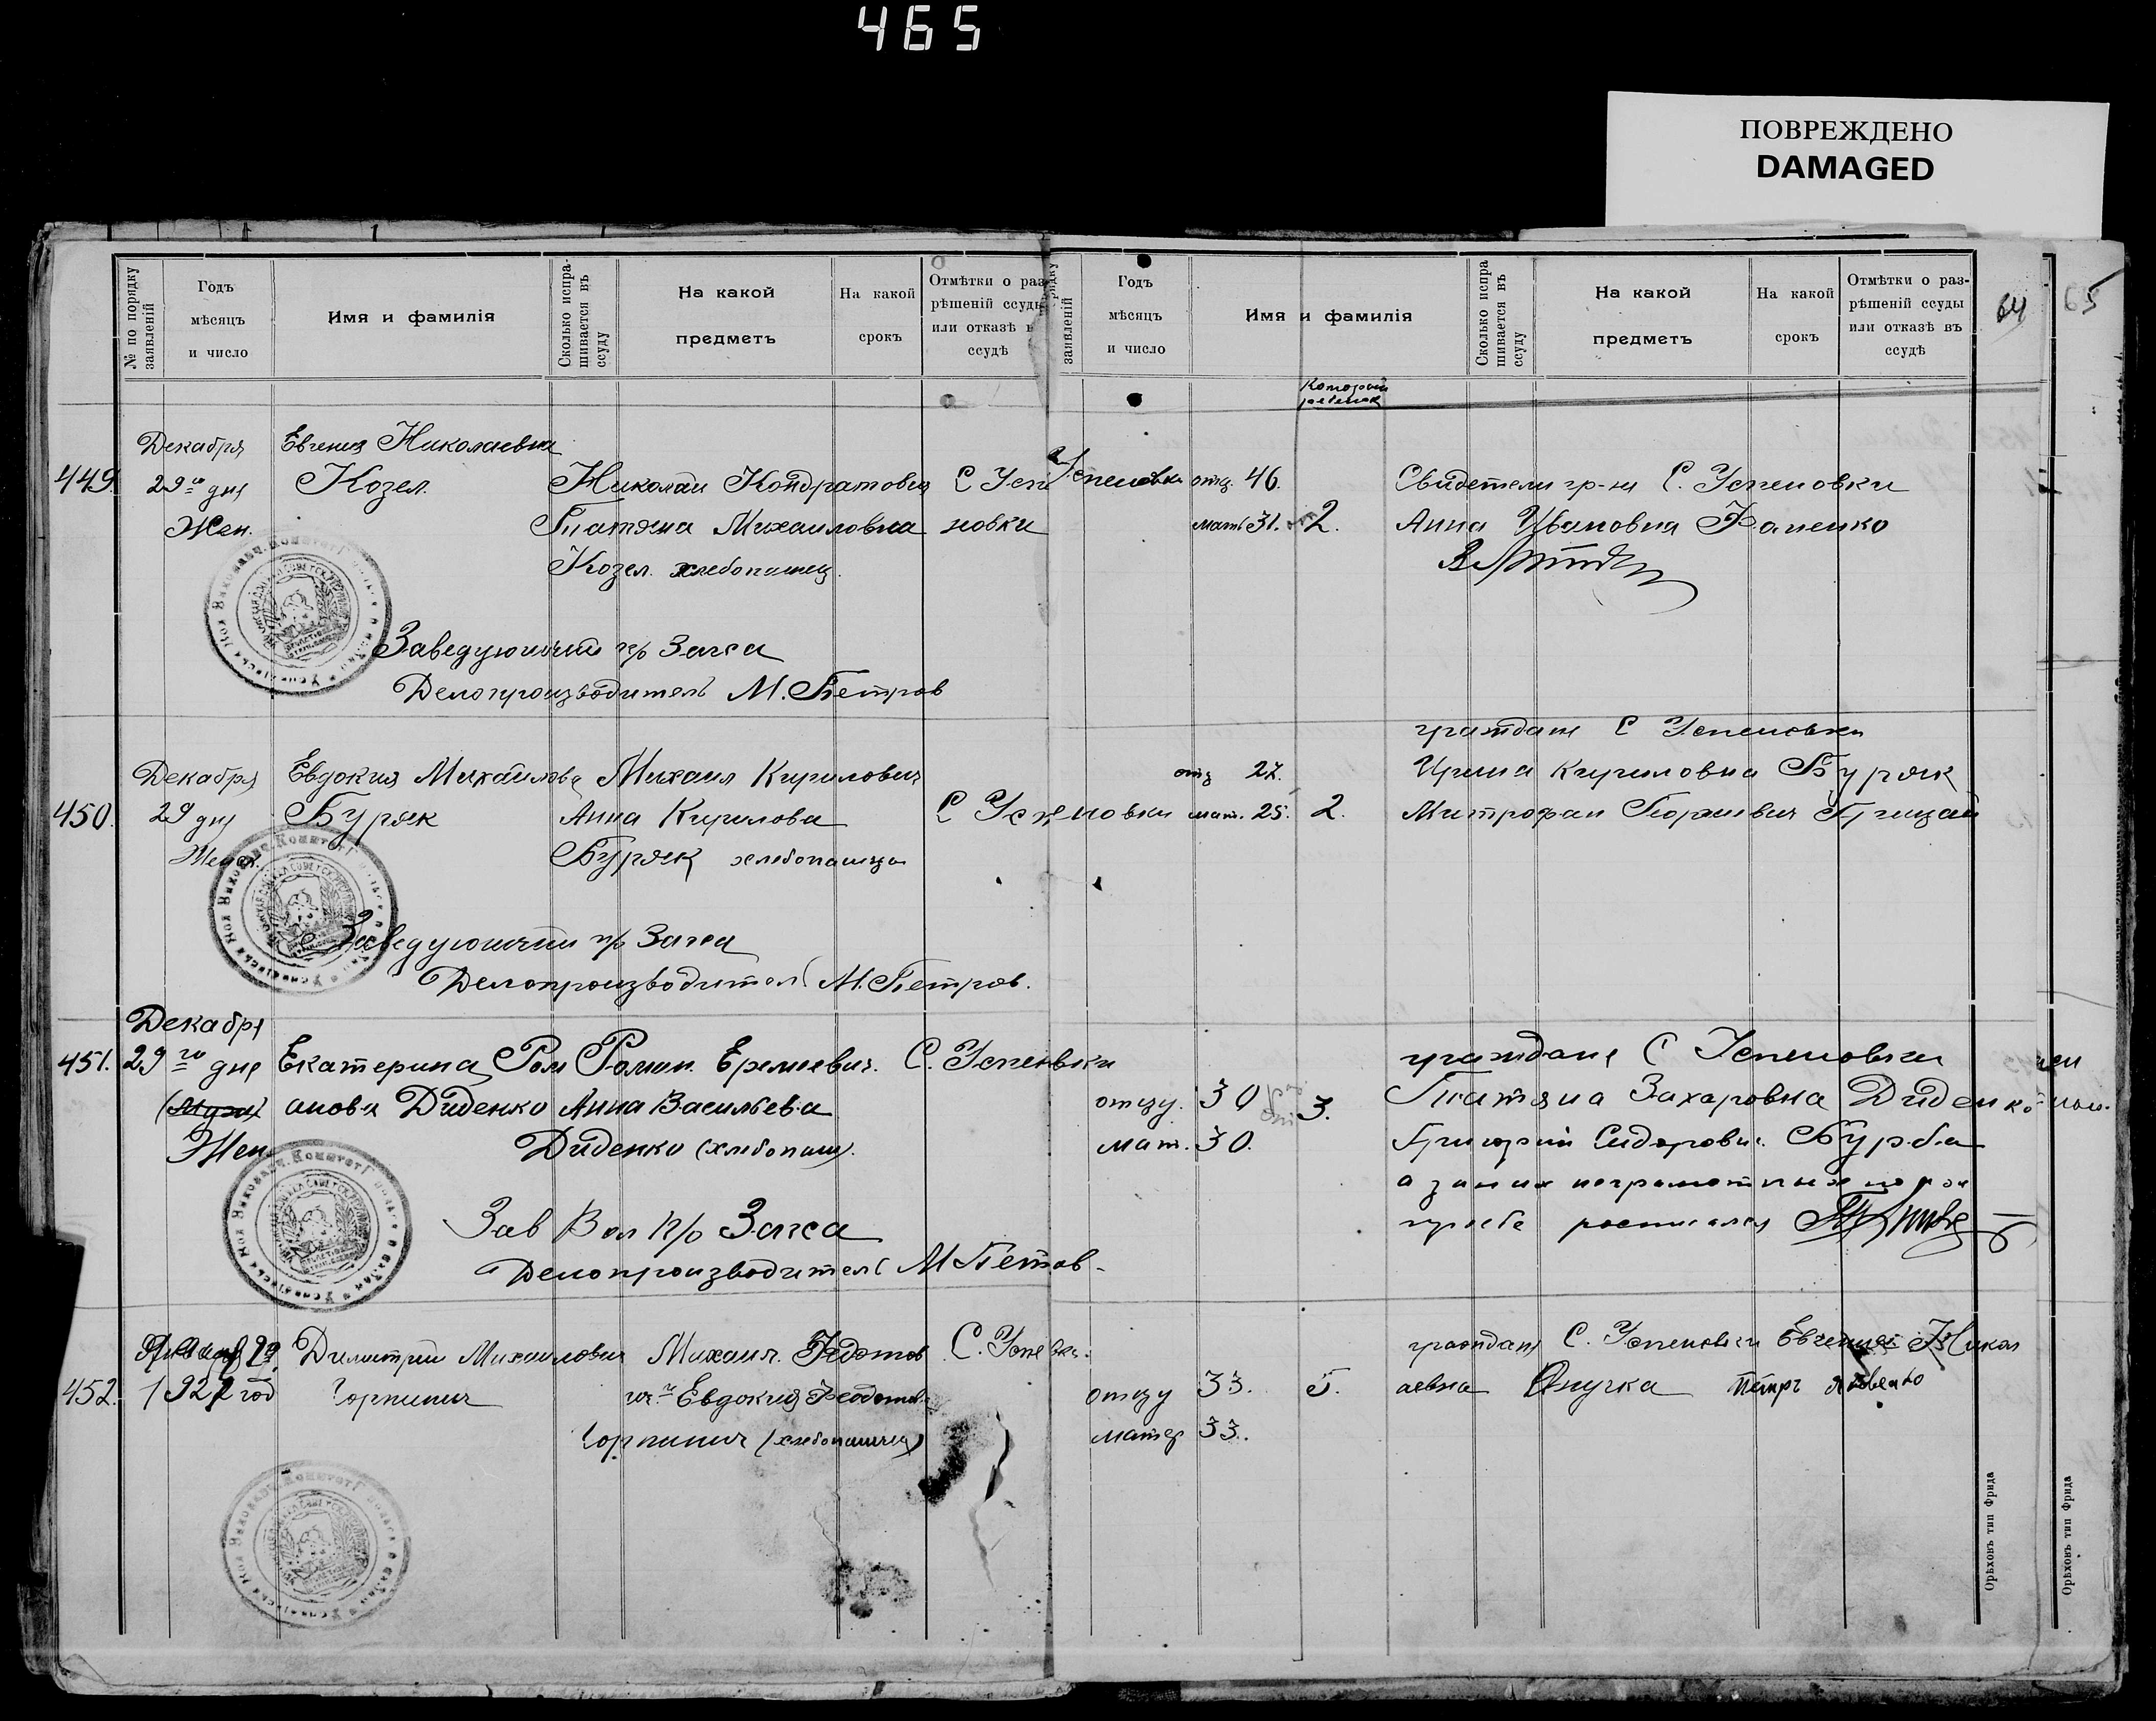 465
ПОВРЕЖДЕНО
DAMAGED
№ по порядку заявленій
Годъ мѣсяцъ и число
Имя и фамилія
Сколько испрашивается въ ссуду
На какой предметъ
На какой срокъ
Отмѣтки о раз
рѣшеній ссуды
или отказѣ в
ссудѣ
заявленій
Годъ мѣсяцъ и число
Имя и фамилія
Сколько испра
шивается въ ссуду
На какой предметъ
На какой срокъ
Отмѣтки о раз-
рѣшеній ссуды
или отказѣ въ
ссудѣ
64
65
Который
ребенок
449.
Декабря
29го дня
Жен.
Евгения Николаевна
Козел.
Николай Кондратович
Татяна Михаиловна
Козел. хлебопашец.
С Успе
новки
Успеновки
отц. 46.
мат 31.
2.
Свидетели гр-не С. Успеновки
Анна Ивановна
Заведующий п/о Загса
Делопроизводитель М. Петров
450.
Декабря
29 дня
Женск.
Евдокия Михайлова
Буряк
Михаил Кирилович
Анна Кирилова
Буряк хлебопашцы
С Успеновки
отц 27.
мат. 25.
2.
граждане С Успеновки
Ирина Кириловна Буряк
Митрофан Грицай
Заведующий п/о Загса
Делопроизводител М. Петров.
451.
Декабря
29го дня
Жен
Екатерина Ром
анова Диденко
Роман Еремеевич.
Анна Васильева
Диденко (хлебопаш).
С. Успеновки
отцу. 30
мат. 30.
3.
граждане С Успеновки
Татяна Захаровна Диденко
Григорий Сидорович Бурба
а за них неграмотных по их
прозбе росписался
Зав Вол п/о Загса
Делопроизводитель М Петов-
452.
1922 год
Димитрий Михаилович
Горпинич
Михаил. Федотов
ич. Евдокия Феодотов.
Горпинич (хлебопашцы)
С.
отцу 33.
матер 33.
5.
граждан С. Успеновки Евгения Никол
аевна Онучка Петръ Яковенко
Орѣховъ тип Фрида
Орѣховъ тип Фрида